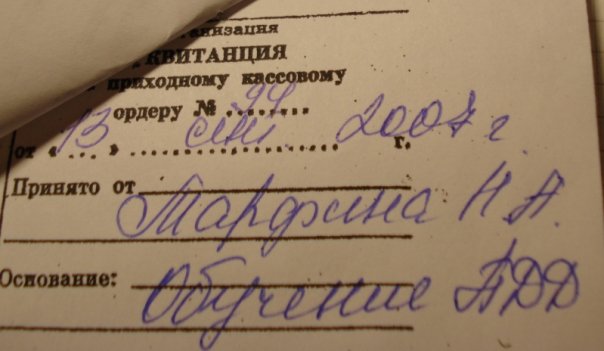 анизация
КВИТАНЦИЯ
приходному кассовому
ордеру № 94
от « 13 » сент 2007 г. г.
Принято от
Марфина Н А.
Основание:
Обучение ПДД